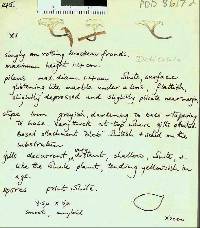 245.
PDD 86179
x1
Delicatula
singly on rotting bracken frond.
maximum height 1.2 cm.
pileus max. diam. 0.4 cm White, surface
glistening like marble under a lens, flattish,
slightly depressed and slightly plicate near margin.
stipe brown greyish, darkening to base + tapering
to base. very thick at top where gills attached.
based attachment 'disc' whitish + solid on the
substratum
gills decurrent, distant, shallow, white, +
like the whole plant, tending yellowish in
age.
spores print white.
smooth, amyloid
x2000